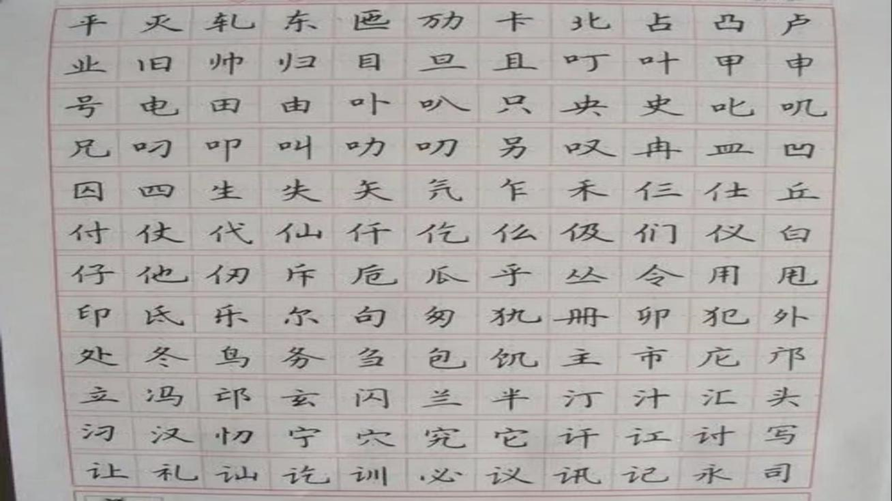 平灭轧东匜劢卡北占凸卢
业旧帅归目旦且叮叶甲申
号电田由卟叭只央史叱叽
兄叼叩叫叻叨另叹冉皿凹
囚四生失矢氕乍禾仨仕丘
付仗代仙仟仡仫伋们仪白
仔他仞斥卮瓜乎丛令用甩
印氐乐尔句匆犰册卯犯外
处冬鸟务刍包饥主市庀邝
立冯邙玄闪兰半汀汁汇头
汈汉忉宁穴宄它讦讧讨写
让礼讪讫训必议讯记永司